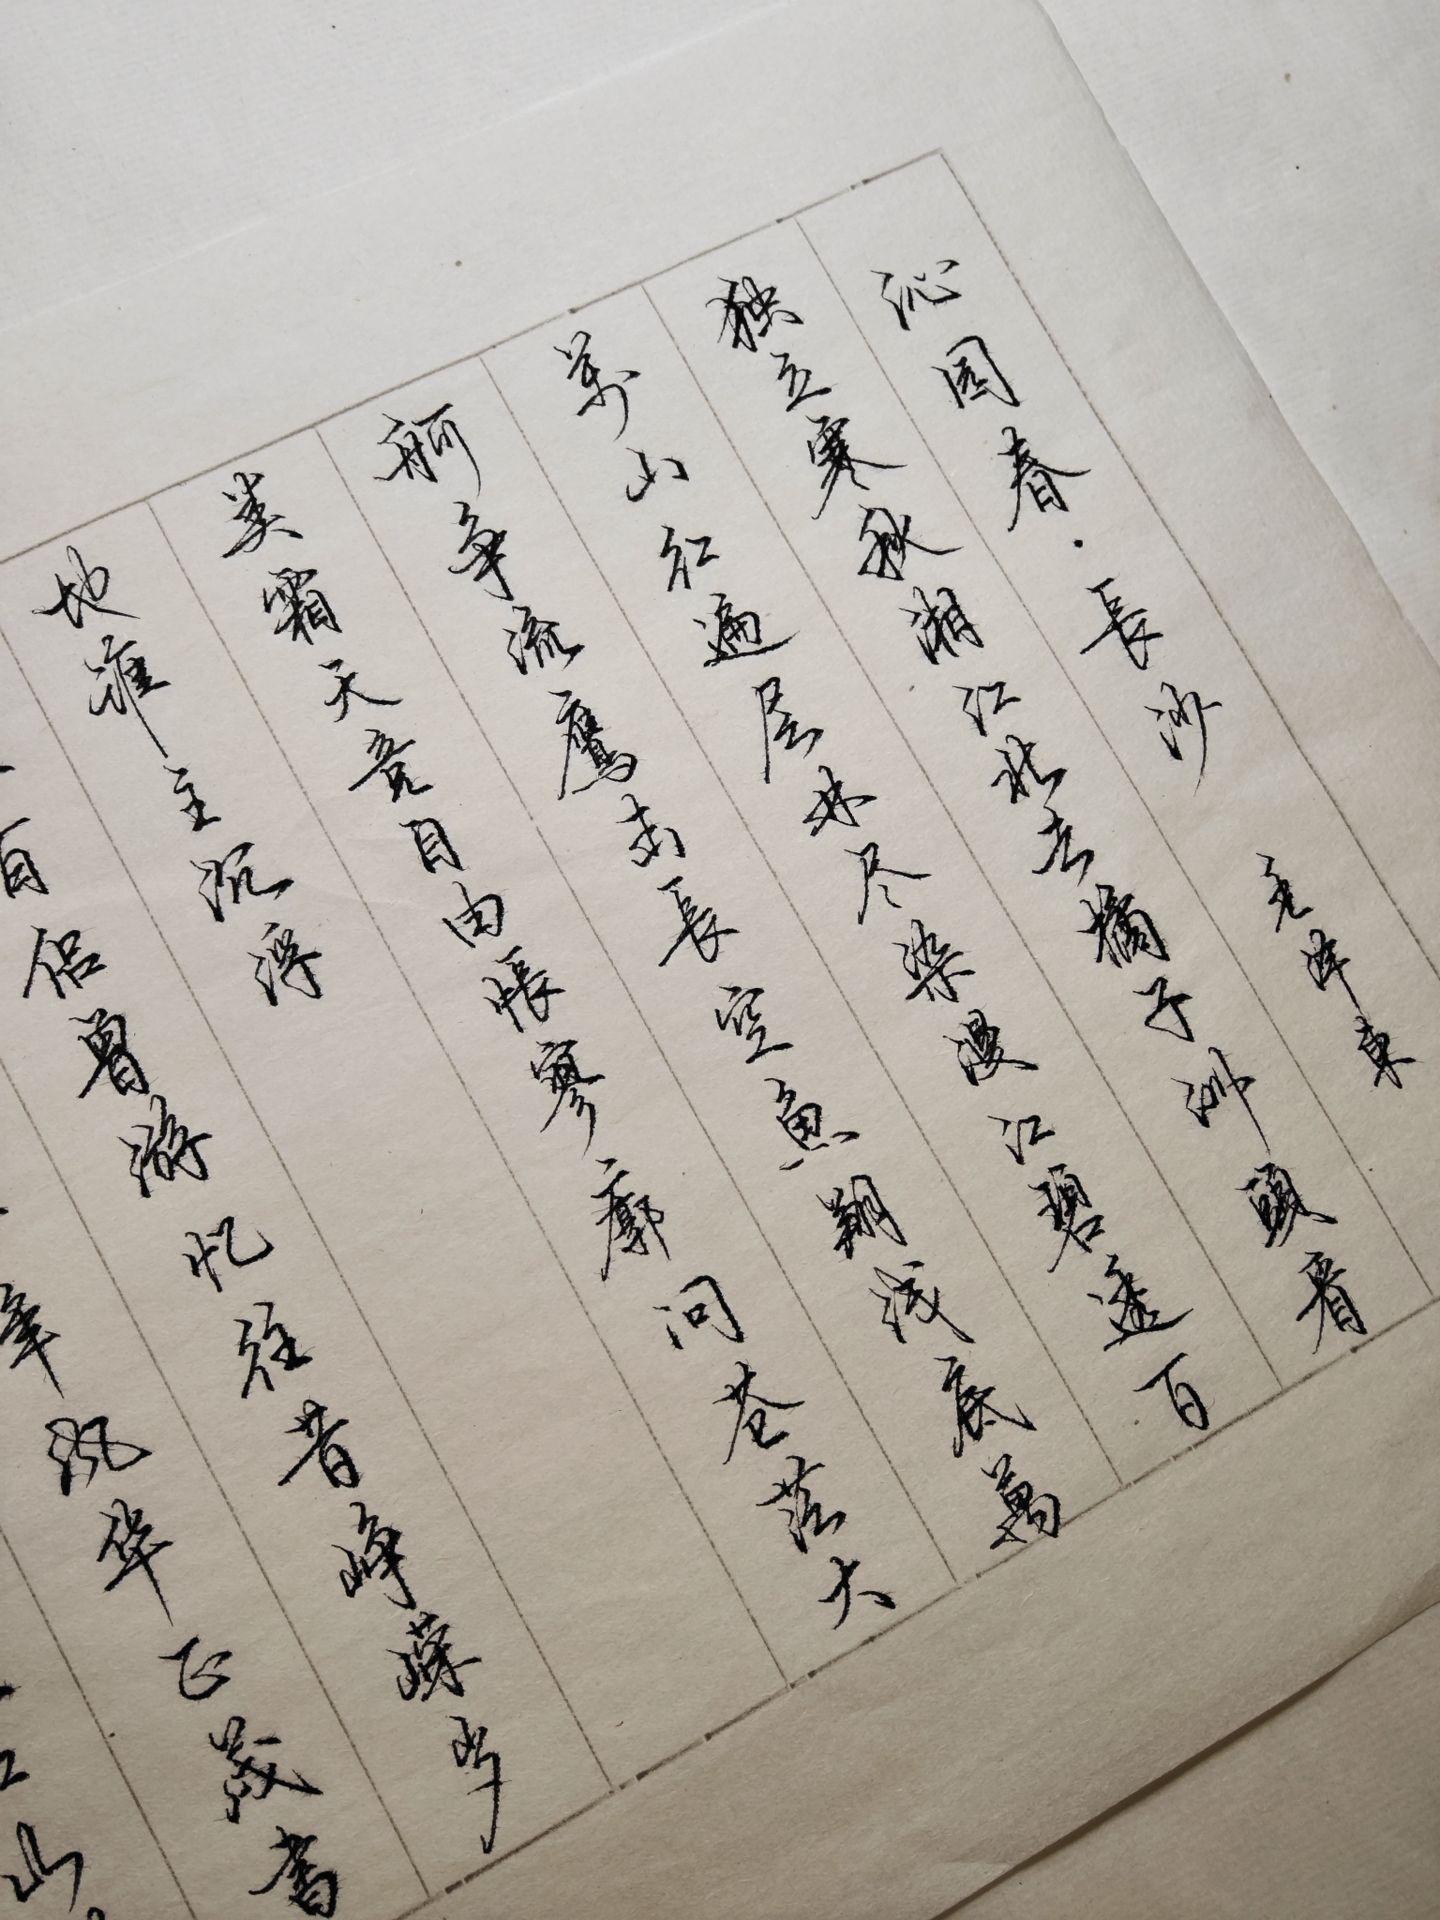 沁园春·長沙 毛泽東
独立寒秋湘江北去橘子洲頭看
萬山红遍层林尽染漫江碧透百
舸争流鷹击長空鱼翔浅底萬
类霜天竞自由悵寥廓问苍茫大
地谁主沉浮
百侣曾游忆往昔峥嵘岁
年风华正茂書
山